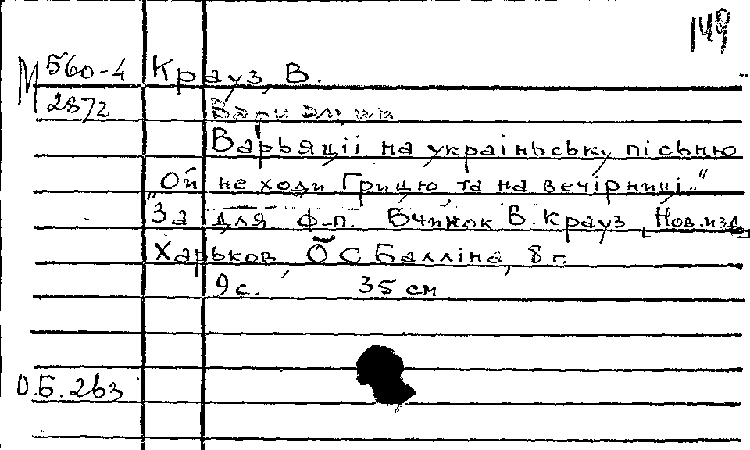 149
М 560-4 Крауз, В.
2872
Варьяціі на украіньську пісьню
„Ой не ходи Грицю та на вечірниці.“
За для ф-п. Вчинок В. Крауз [Нов. изд.]
Харьков, О С Балліна, 8 г.
9 с. 35 см
О.Б. 263